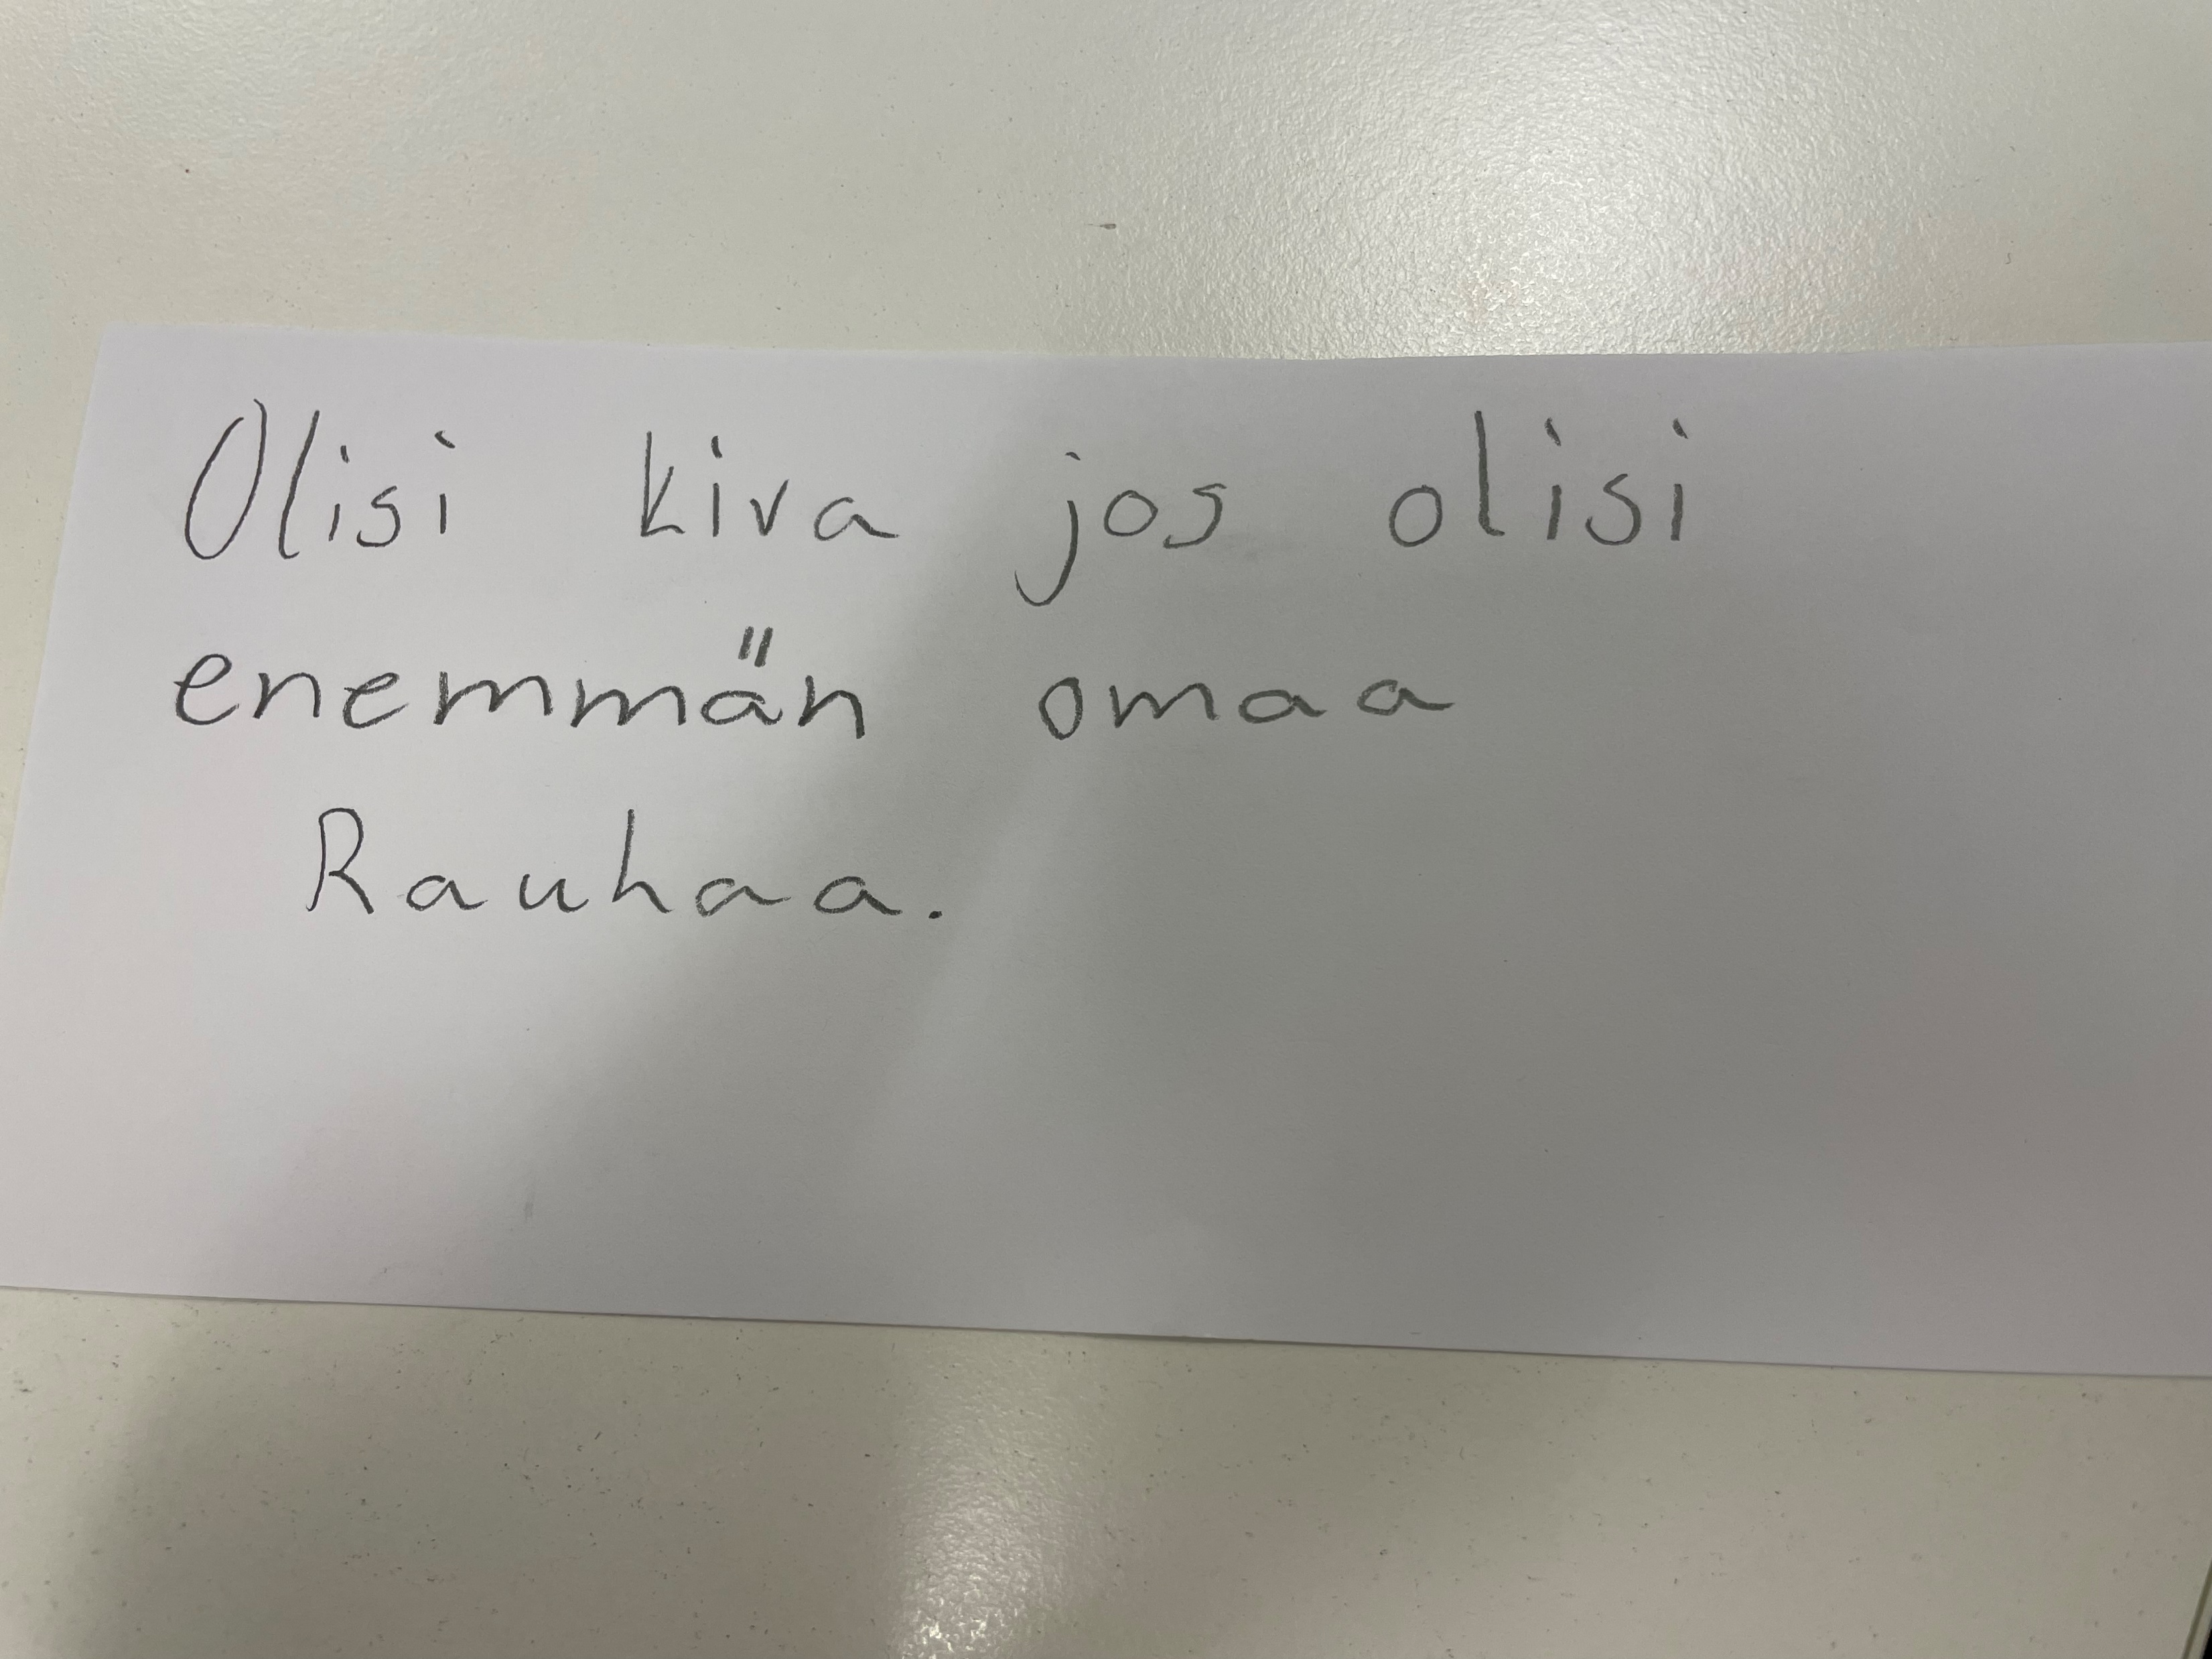 Olisi kiva jos olisi
enemmän omaa
Rauhaa.